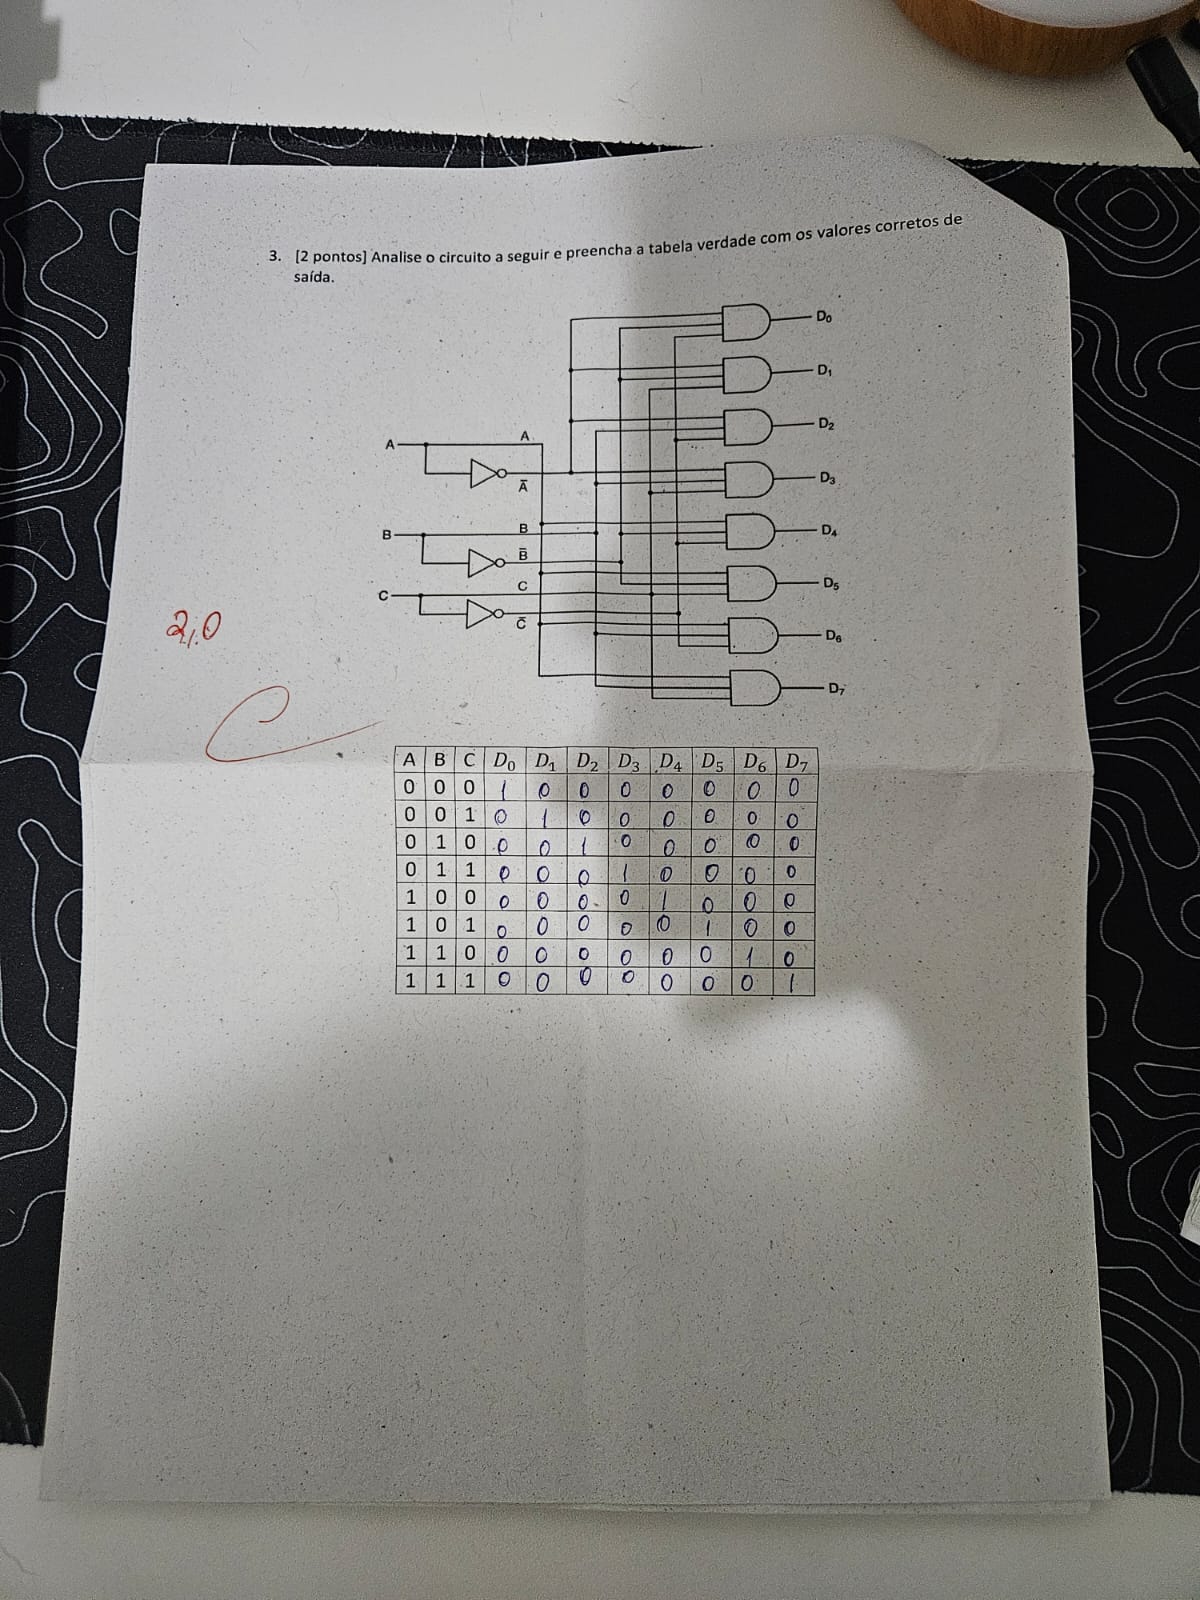 3. [2 pontos] Analise o circuito a seguir e preencha a tabela verdade com os valores corretos de
saída.
D₀
D₁
D₂
A A
Ā D₃
B B D₄
B̄
C C D₅
C̄
2,0 D₆
D₇
A B C D₀ D₁ D₂ D₃ D₄ D₅ D₆ D₇
0 0 0 1 0 0 0 0 0 0 0
0 0 1 0 1 0 0 0 0 0 0
0 1 0 0 0 1 0 0 0 0 0
0 1 1 0 0 0 1 0 0 0 0
1 0 0 0 0 0 0 1 0 0 0
1 0 1 0 0 0 0 0 1 0 0
1 1 0 0 0 0 0 0 0 1 0
1 1 1 0 0 0 0 0 0 0 1